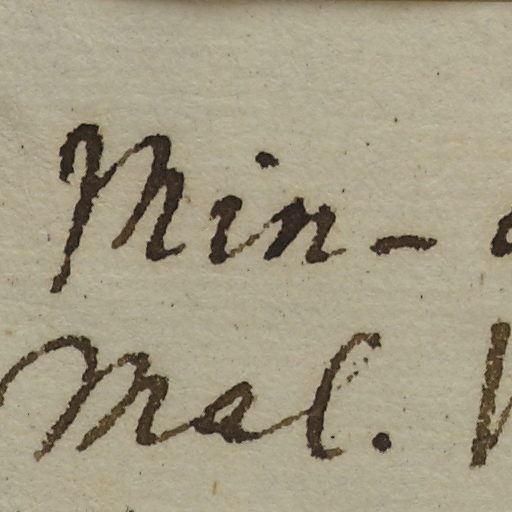 Min-
Mal.